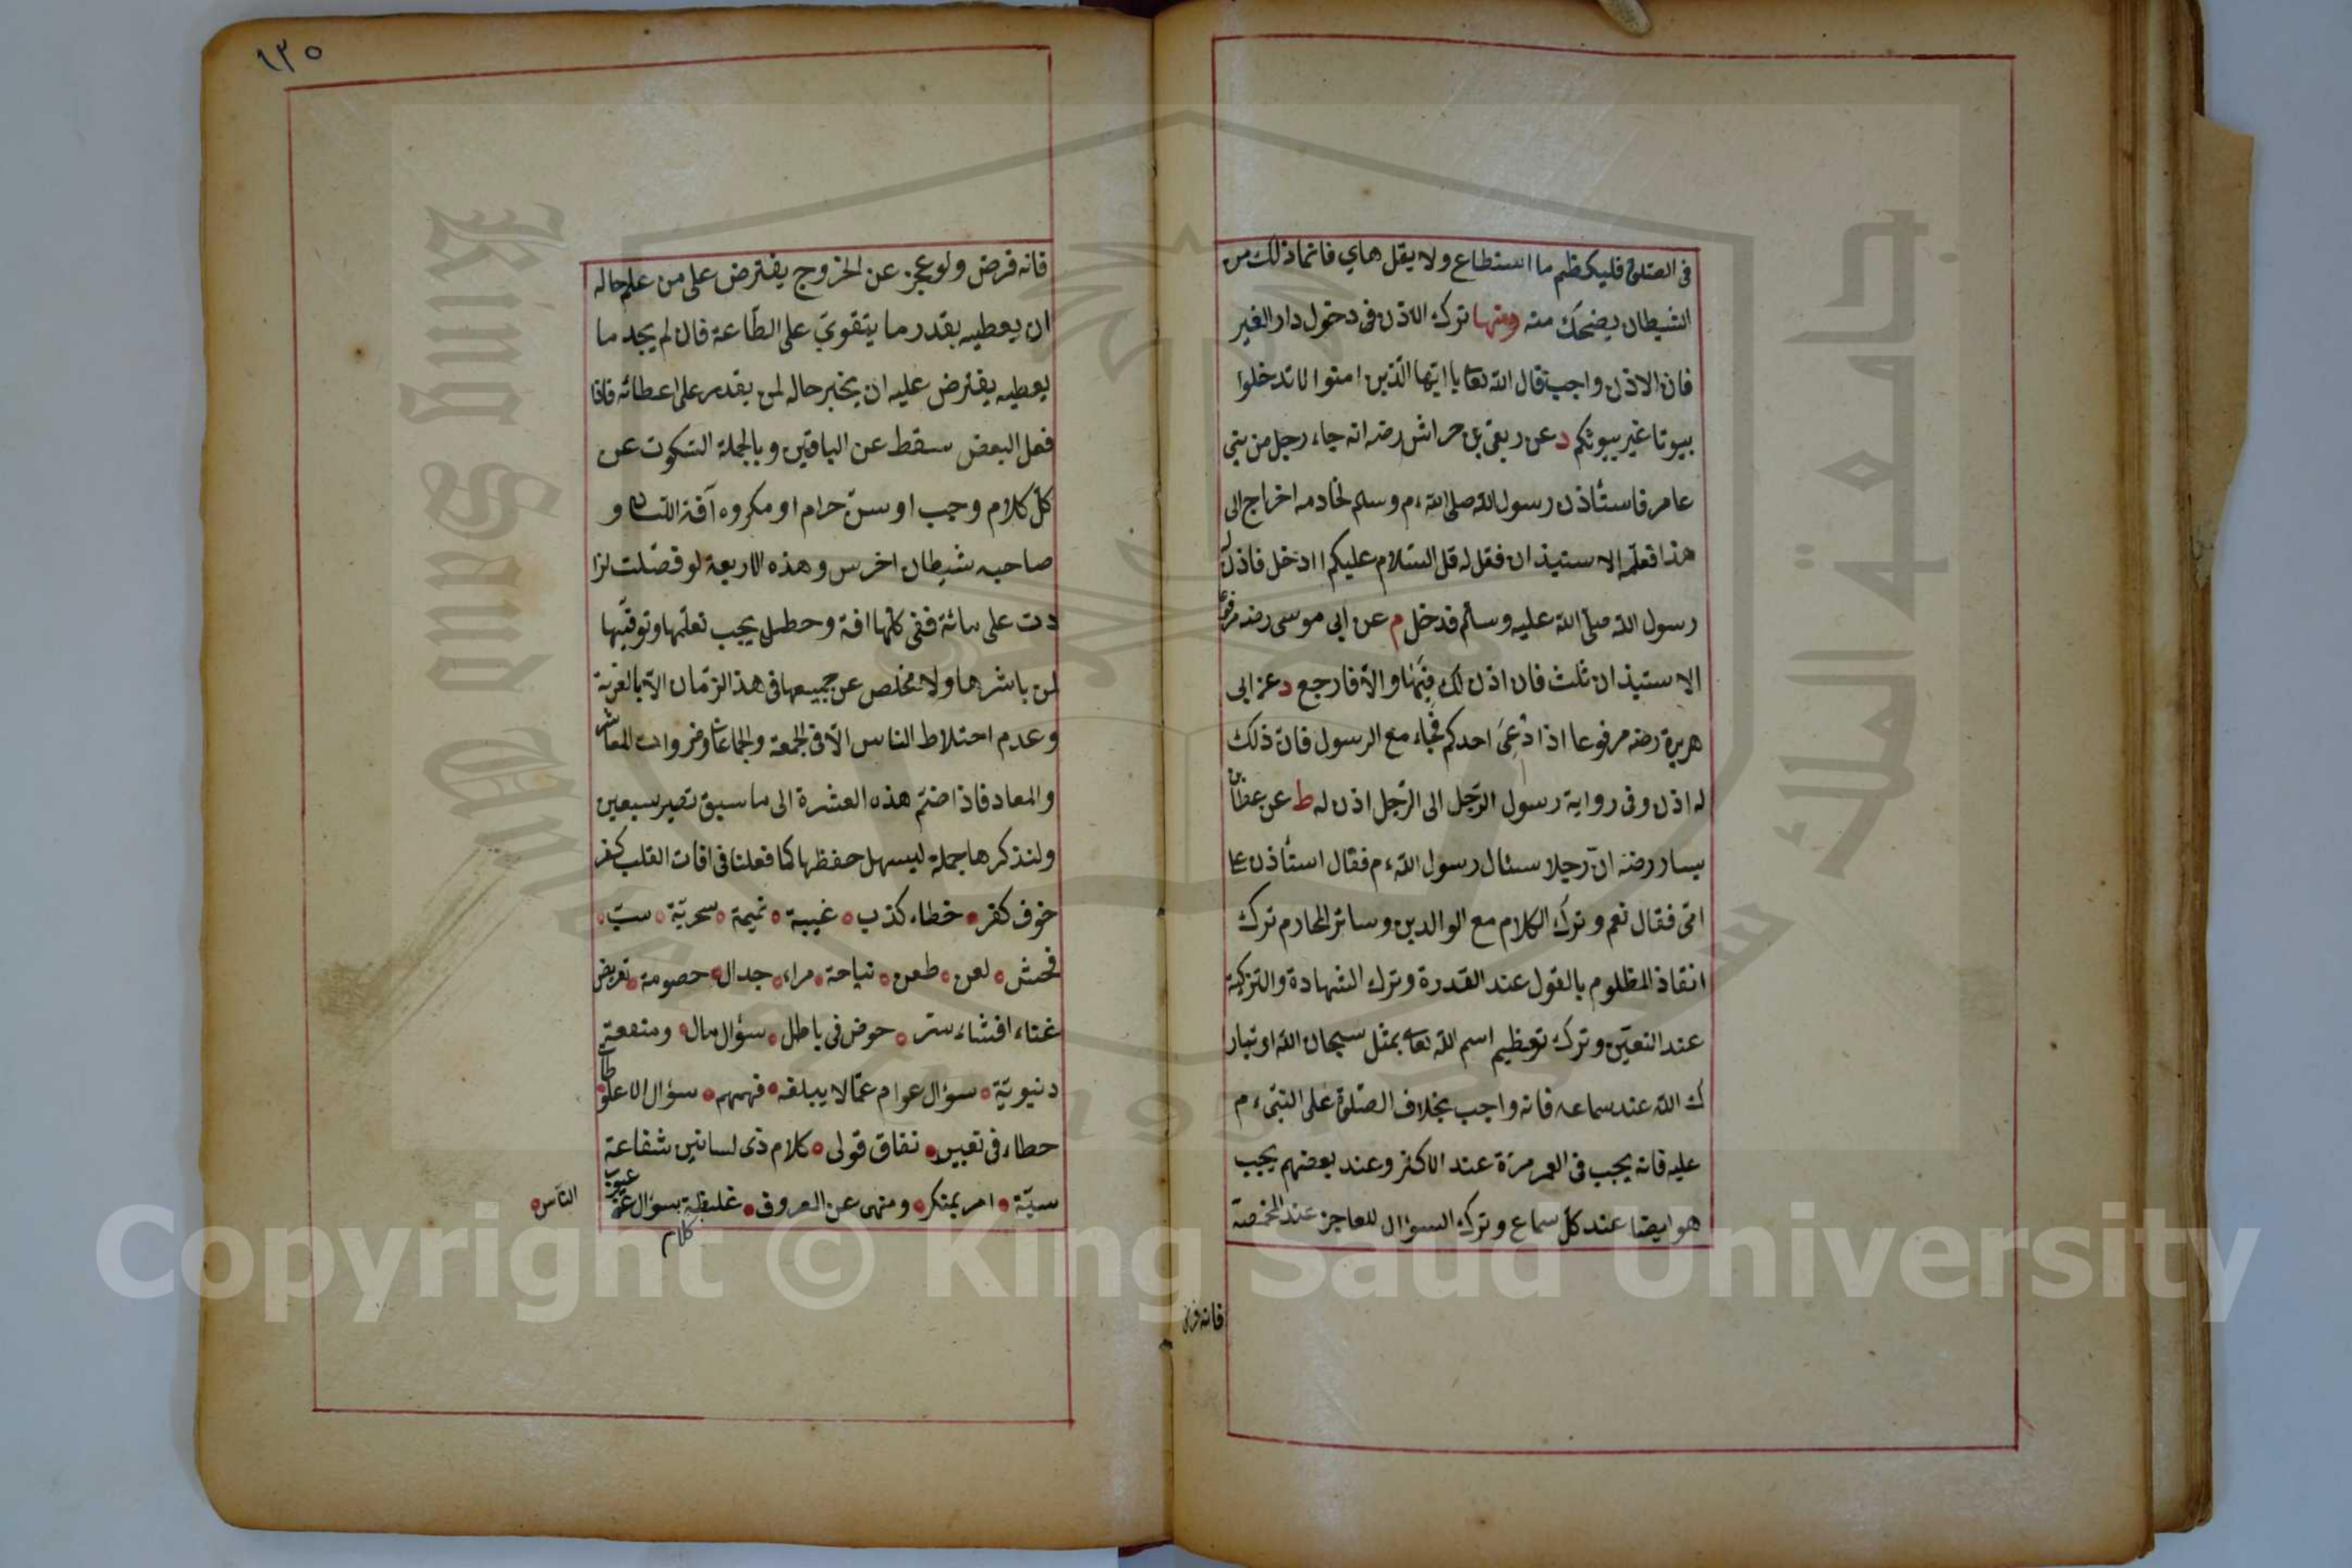 فى الصلوة فليكظم ما استطاع ولا يقل هاي فانما ذلك من
الشيطان يضحك منه ومنها ترك الاذن فى دخول دار الغير
فان الاذن واجب قال الله تعا يا ايها الذين امنوا لا تدخلوا
بيوتا غير بيوتكم د عن ربعى بن حراش رضه انه جاء رجل من بنى
عامر فاستأذن رسول الله صلى الله ءم وسلم لخادمه اخراج الى
هذا فعلمه الاستيذان فقل له قل السلام عليكم اادخل فاذن له
رسول الله صلى الله عليه وسلم فدخل م عن ابى موسى رضه مرفوعا
الاستيذان ثلث فان اذن لك فبها والا فارجع د عن ابى
هريرة رضه مرفوعا اذا دعى احدكم فجاء مع الرسول فان ذلك
له اذن وفى رواية رسول الرجل الى الرجل اذن له ط عن عطا بن
يسار رضه ان رجلا سئال رسول الله ءم فقال استأذن على
امى فقال نعم وترك الكلام مع الوالدين وسائر المحارم ترك
انقاذ المظلوم بالقول عند القدرة وترك الشهادة والتزكية
عند التعين وترك تعظيم اسم الله تعا بمثل سبحان الله او تبار
ك الله عند سماعه فانه واجب بخلاف الصلوة على النبى ءم
عليه فانه يجب فى العمر مرة عند الاكثر وعند بعضهم يجب
هو ايضا عند كل سماع وترك السؤال للعاجز عند المخمصة
فانه فرض
١٣٥
فانه فرض ولو عجز عن الخروج يفترض على من علم حاله
ان يعطيه بقدر ما يتقوي على الطاعة فان لم يجد ما
يعطيه يفترض عليه ان يخبر حاله لمن يقدر على اعطائه فاذا
فعل البعض سقط عن الباقين وبالجملة السكوت عن
كل كلام وجب او سن حرام او مكروه آفة اللسان و
صاحبه شيطان اخرس وهذه الاربعة لو فصلت لزا
دت على مائة ففى كلها افة وحطل يجب تعلمها وتوقيها
لمن باشرها ولا مخلص عن جميعها فى هذ الزمان الا بالعزلة
وعدم احتلاط الناس الا فى الجمعة والجماعات وضروات المعاش
والمعاد فاذا ضتم هذه العشرة الى ما سبق تصير سبعين
ولنذكرها جملة ليسهل حفظها كما فعلنا فى افات القلب كفر
خوف كفر خطاء كذب غيبة نميمة سخرية سب
فحش لعن طعن نياحة مراء جدال حصومة تعريض
غناء افشاء ستر حوض فى باطل سؤال مال ومنفعة
دنيوية سؤال عوام عما لا يبلغه فهمهم سؤال الاغلوطات
حطاء فى تعبير نفاق قولى كلام ذى لسانين شفاعة
سيئة امر بمنكر ومنهى عن المعروف غليظة سؤال عن عيوب
كلام
الناس
Copyright © King Saud University
King Saud University
جامعة الملك سعود
1957